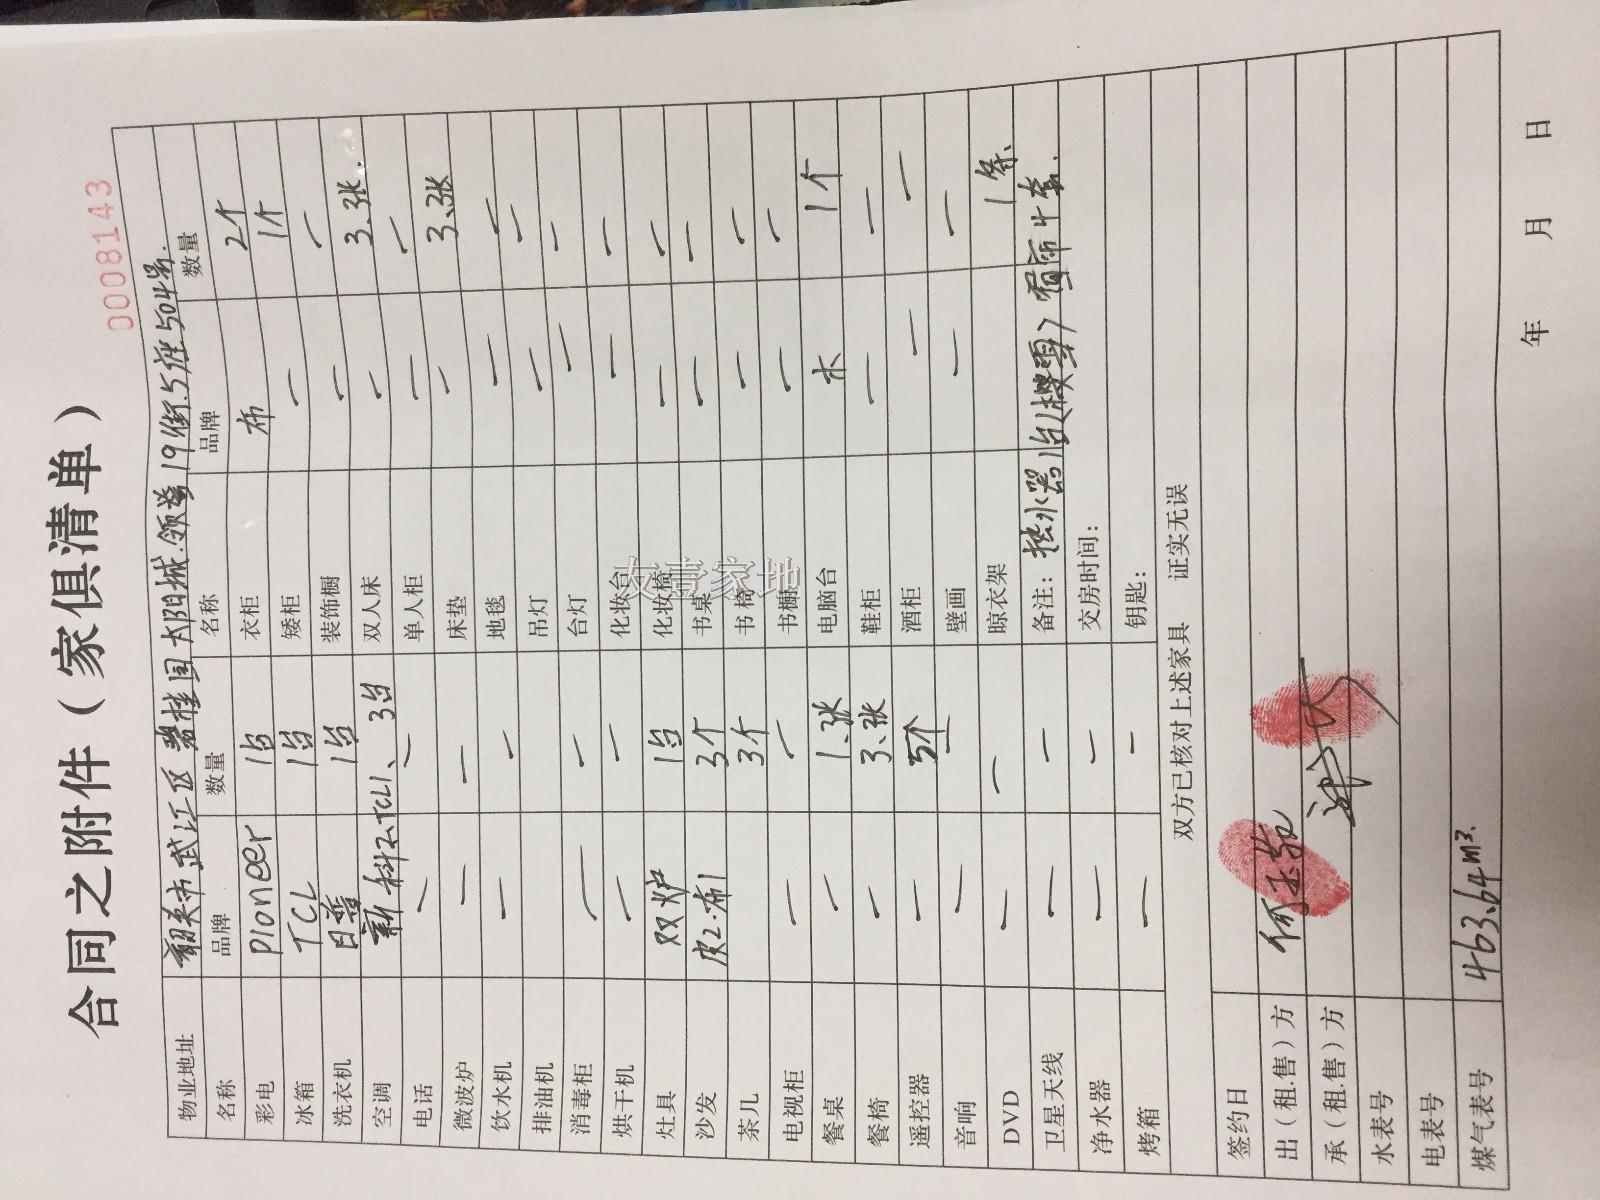 合同之附件（家俱清单）
00081143
物业地址 韶关市武江区碧桂园太阳城.领誉19街.5座504号.
名称 品牌 数量 名称 品牌 数量
彩电 Pioneer 1台 衣柜 布 2个
冰箱 TCL 1台 矮柜 — 1个
洗衣机 日普 1台 装饰橱 — —
空调 新科2、TCL1、3台 双人床 — 3.张.
电话 — — 单人柜 — —
微波炉 — — 床垫 — 3.张
饮水机 — — 地毯 — —
排油机 吊灯 — —
消毒柜 — — 台灯 — —
烘干机 — — 化妆台 — —
灶具 双炉 1台 化妆椅 — —
沙发 皮2.布1 3个 书桌 — —
茶几 3个 书椅 — —
电视柜 — — 书橱 — —
餐桌 — 1.张 电脑台 木 1个
餐椅 — 3.张 鞋柜 — —
遥控器 — 5个 酒柜 — —
音响 — — 壁画 — —
DVD — — 晾衣架 1条
卫星天线 — — 备注：热水器1台(樱雪) 窗帘4套.
净水器 — — 交房时间：
烤箱 — — 钥匙：
双方已核对上述家具 证实无误
签约日
出（租.售）方
承（租.售）方
水表号
电表号
煤气表号 463.64m³.
年 月 日
友壹家地